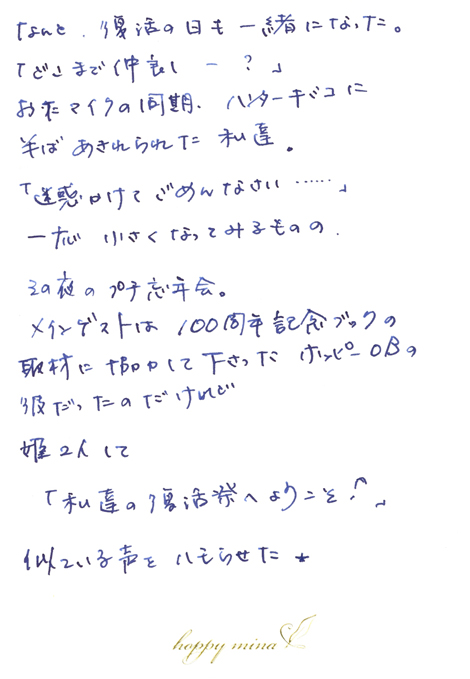 なんと、復活の日も一緒になった。
「どこまで仲良しー?」
おたマイクの同期、ハンターキバコに
半ばあきれられてた私達。
「迷惑かけてごめんなさい……」
一応小さくなってみるものの、
その夜のプチ忘年会。
メインゲストは100周年記念ブックの
取材に協力して下さった ホッピーOBの
彼だったのだけれど
姫2人して
「私達の復活祭へようこそ!^」
似ている声をハモらせた★
hoppy mina